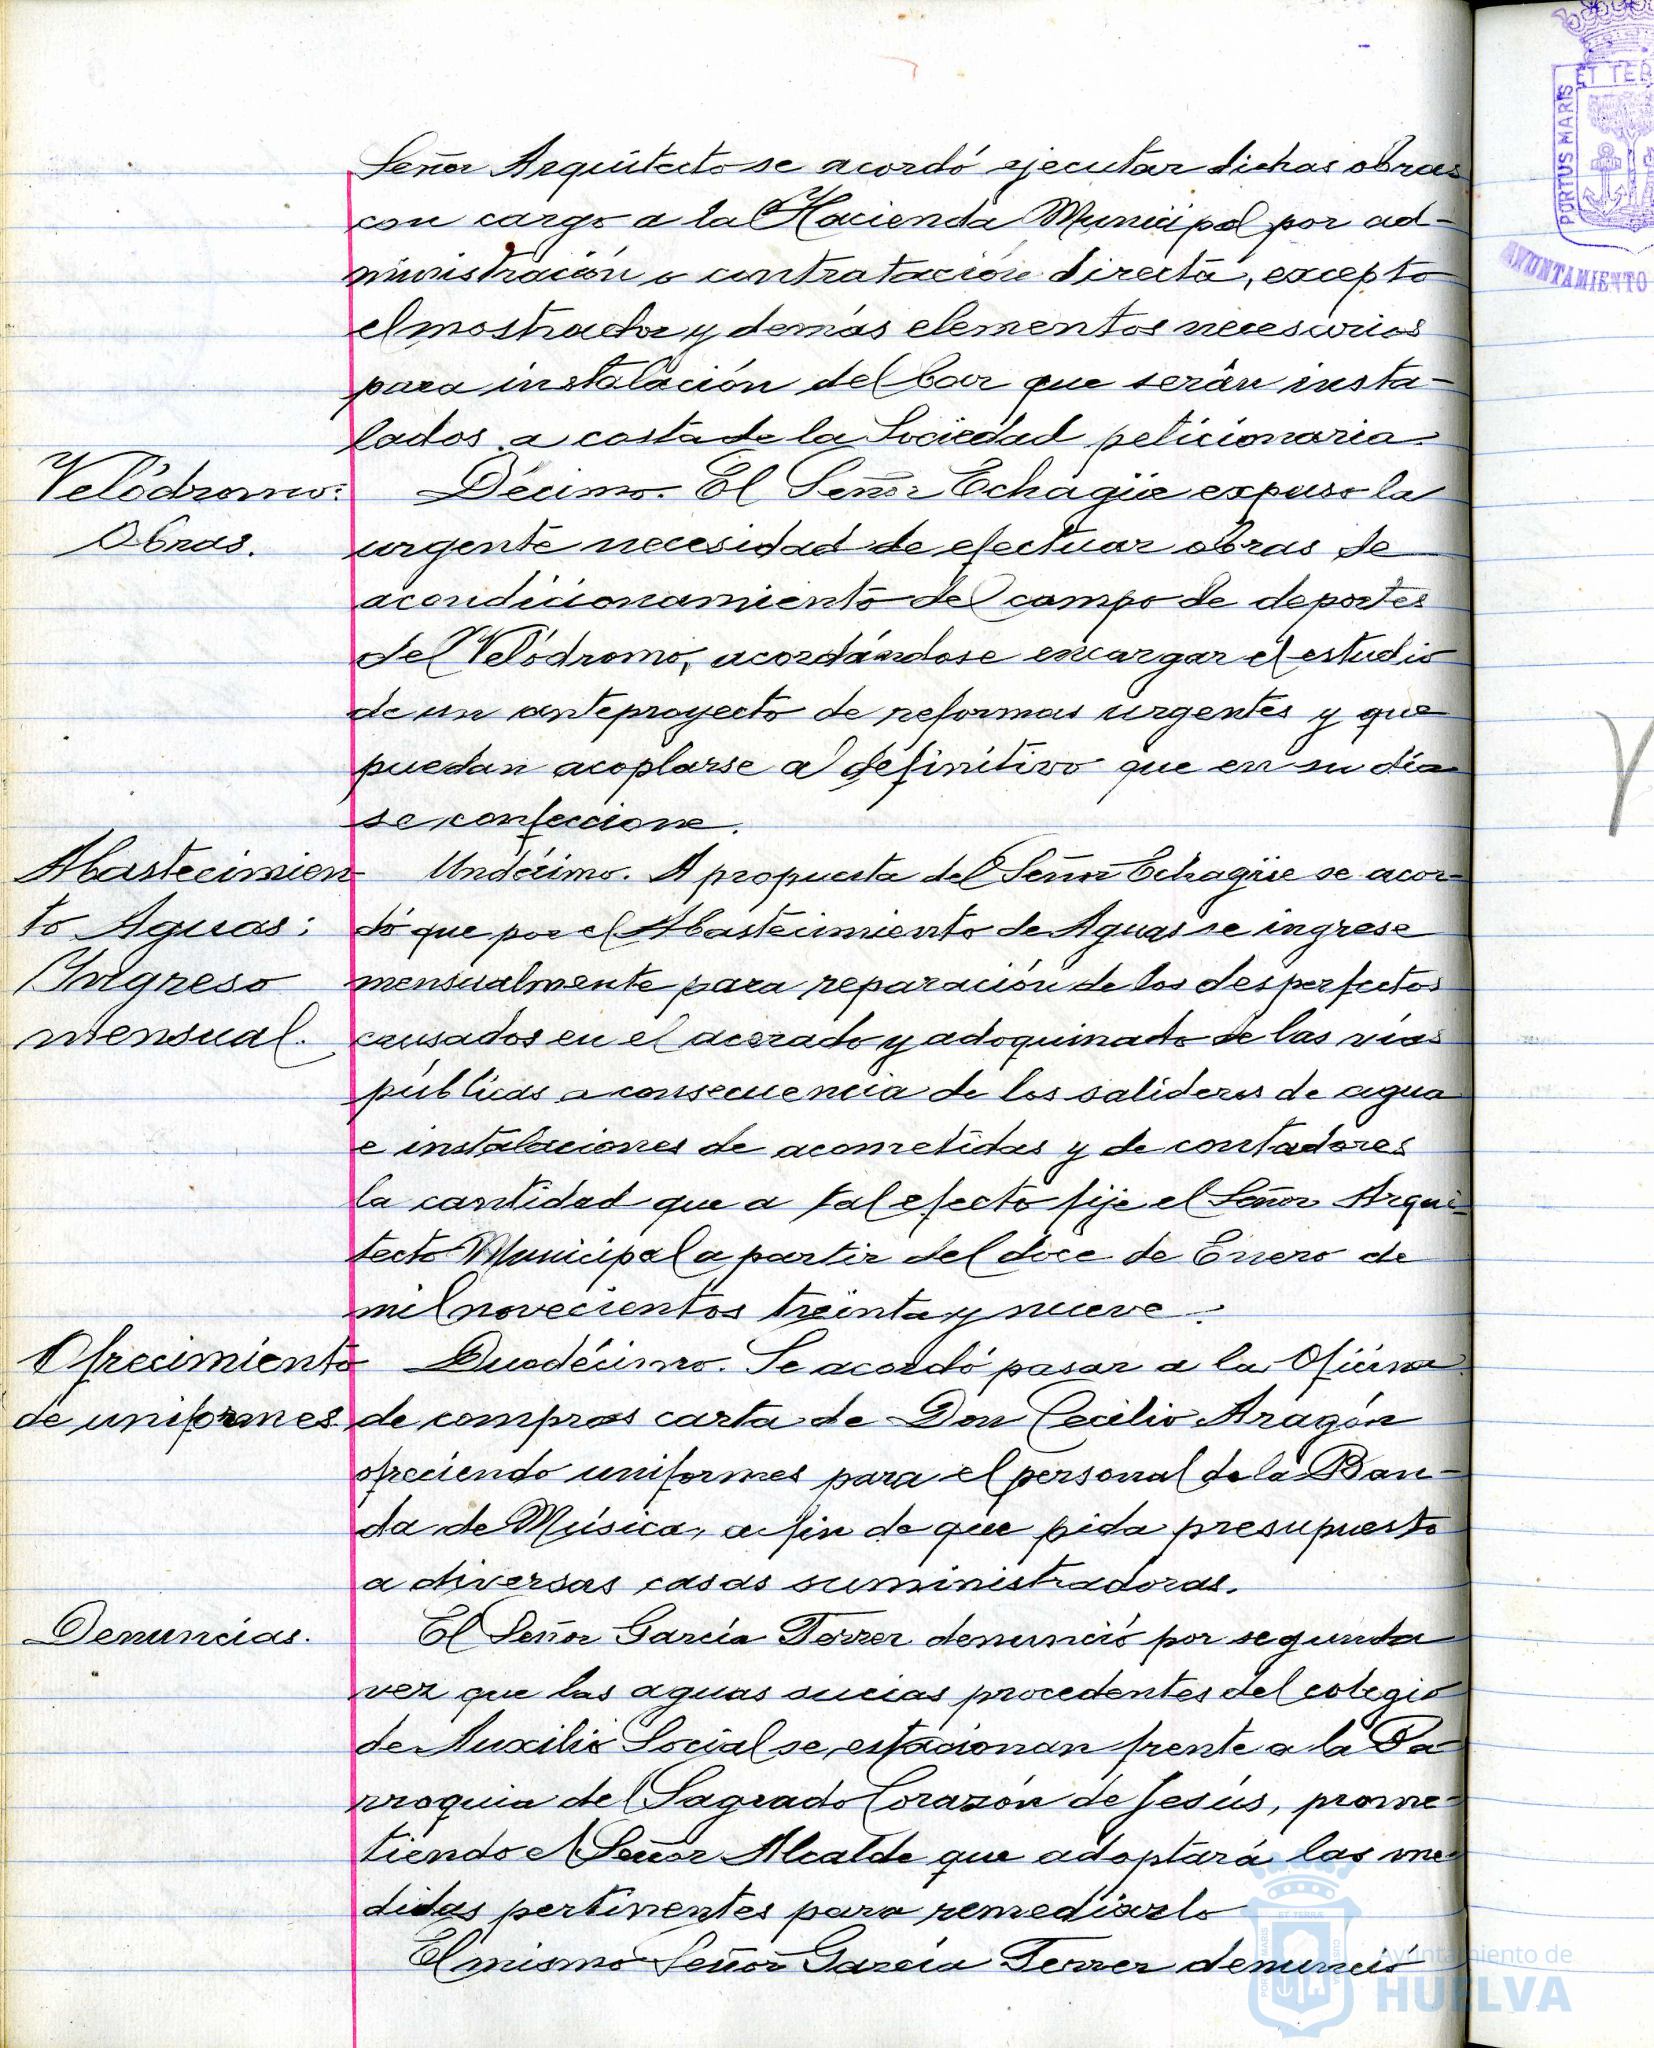 Señor Arquitecto se acordó ejecutar dichas obras
con cargo a la Hacienda Municipal por ad-
ministración o contratación directa, excepto
el mostrador y demás elementos necesarios
para instalación del bar que serán insta-
lados a costa de la Sociedad peticionaria.
Velódromo:
Obras.
Décimo. El Señor Echagüe expuso la
urgente necesidad de efectuar obras de
acondicionamiento del campo de deportes
del Velódromo, acordándose encargar el estudio
de un anteproyecto de reformas urgentes y que
puedan acoplarse al definitivo que en su día
se confeccione.
Abastecimien
to Aguas:
Ingreso
mensual.
Undécimo. A propuesta del Señor Echagüe se acor-
dó que por el Abastecimiento de Aguas se ingrese
mensualmente para reparación de los desperfectos
causados en el acerado y adoquinado de las vías
públicas a consecuencia de los salideros de agua
e instalaciones de acometidas y de contadores
la cantidad que a tal efecto fije el Señor Arqui-
tecto Municipal a partir del doce de Enero de
mil novecientos treinta y nueve.
Ofrecimiento
de uniformes.
Duodécimo. Se acordó pasar a la Oficina
de compras carta de Don Cecilio Aragón
ofreciendo uniformes para el personal de la Ban-
da de Música, a fin de que pida presupuesto
a diversas casas suministradoras.
Denuncias.
El Señor García Terrer denunció por segunda
vez que las aguas sucias procedentes del colegio
de Auxilio Social se estacionan frente a la Pa-
rroquia del Sagrado Corazón de Jesús, prome-
tiendo el Señor Alcalde que adoptará las me-
didas pertinentes para remediarlo
El mismo Señor García Terrer denunció
PORTUS MARIS
ET TER
AYUNTAMIENTO
Ayuntamiento de
HUELVA